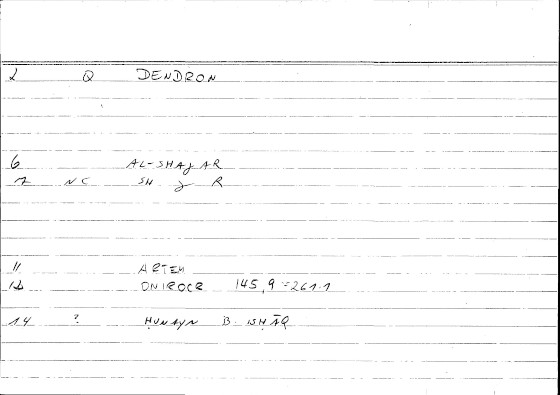 2 Q DENDRON
6 AL-SHAJAR
7 NC SH J R
11 ARTEM
12 ONIROCR 145,9 = 261.1
14 ? ḤUNAYN B. ISḤĀQ